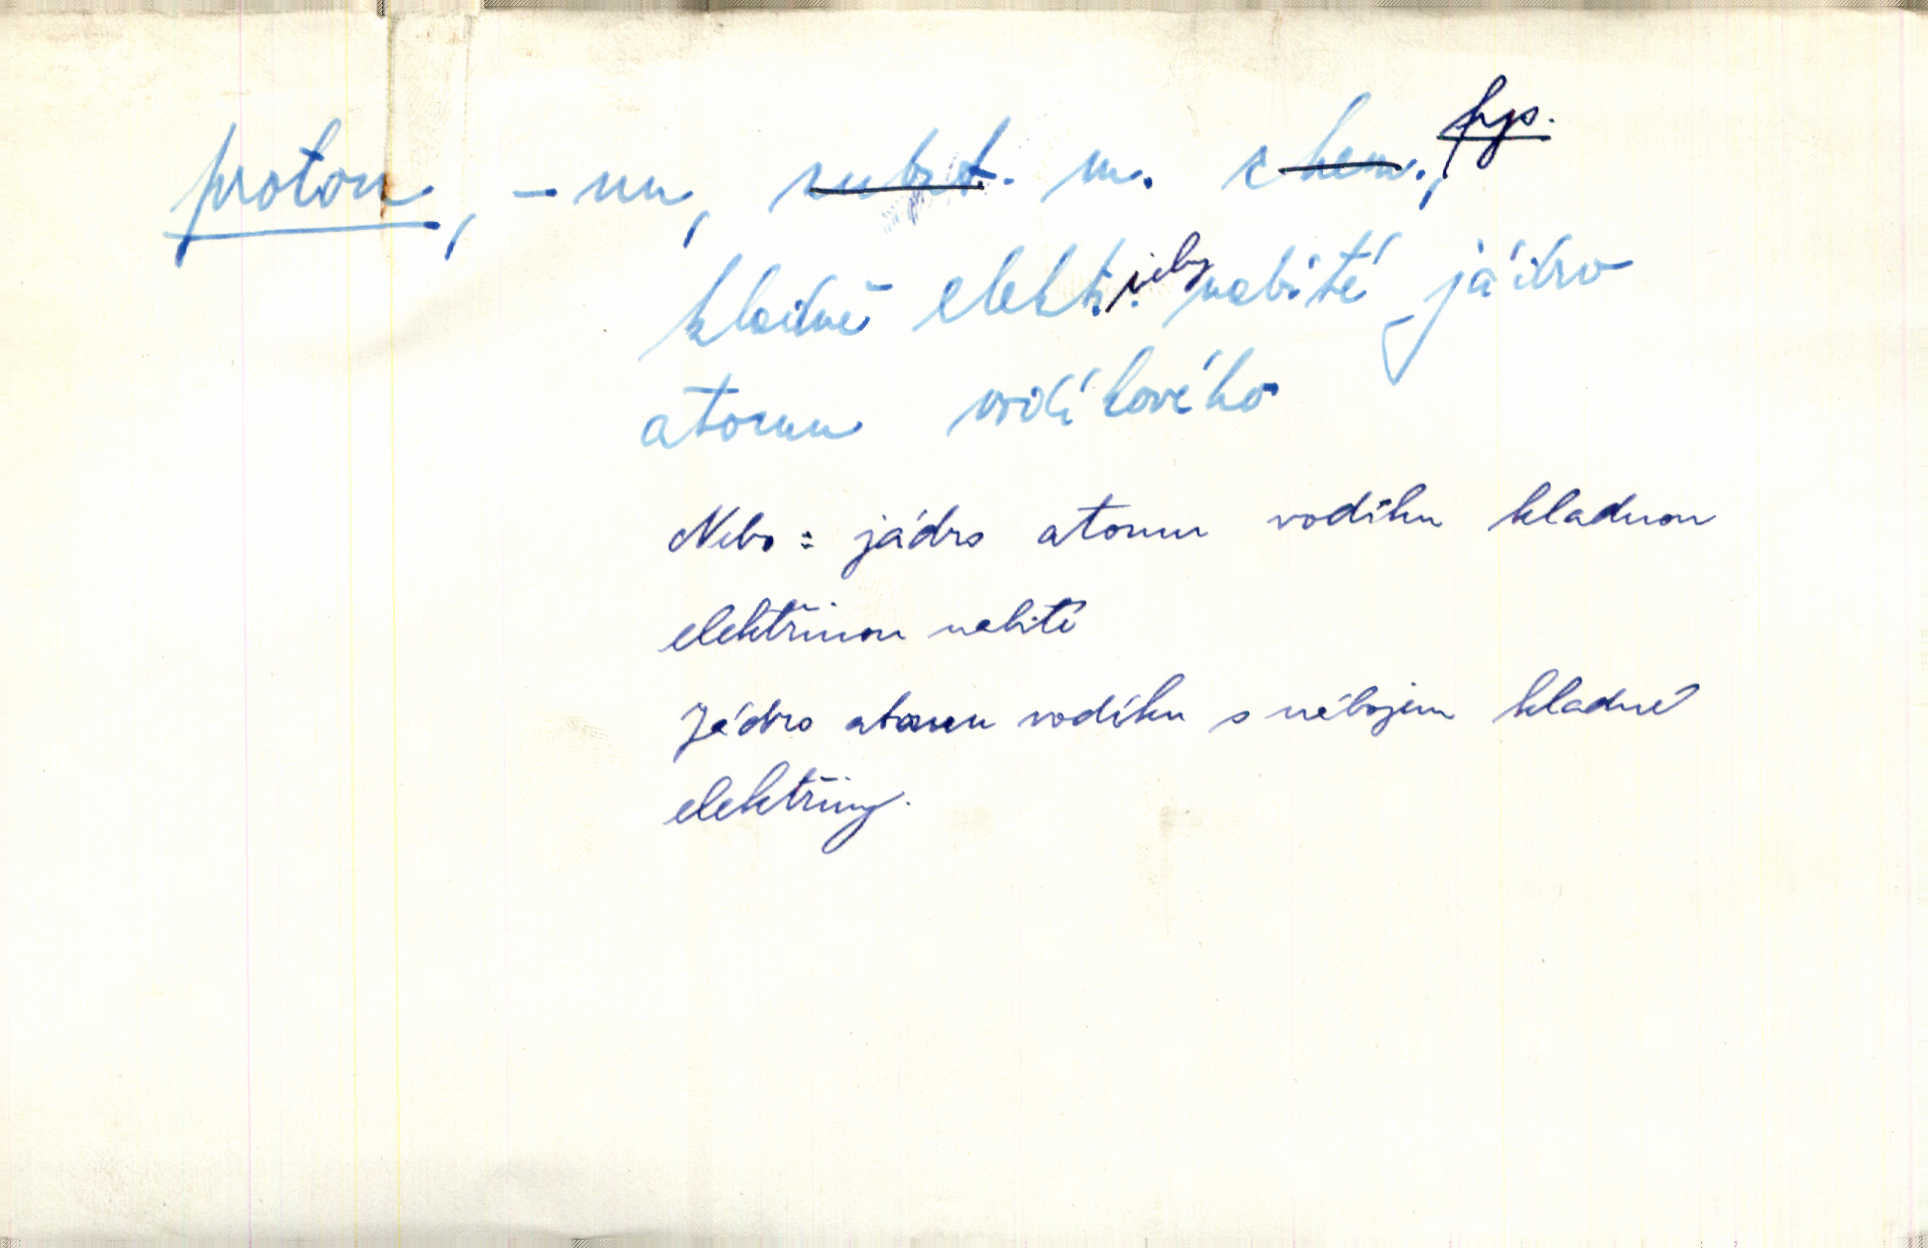 proton, -nu, subst. m. chem., fys.
kladně elektr. nabité jádro
atomu vodíkového
Nebo: jádro atomu vodíku kladnou
elektřinou nabité
Jádro atomu vodíku s nábojem kladné
elektřiny.